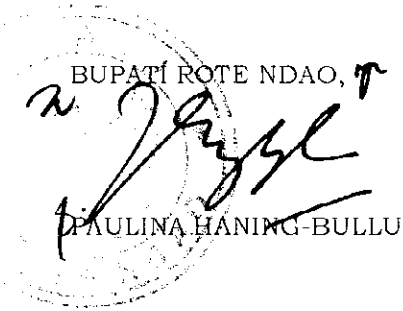 BUPATI ROTE NDAO,
PAULINA HANING-BULLU